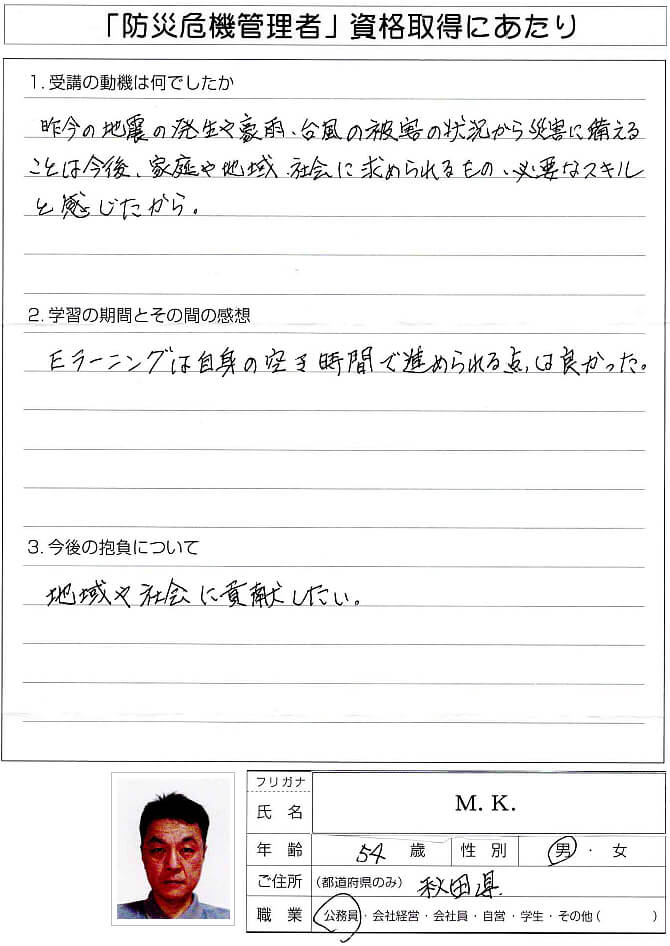 「防災危機管理者」資格取得にあたり
1. 受講の動機は何でしたか
昨今の地震の発生や豪雨、台風の被害の状況から災害に備える
ことは今後、家庭や地域、社会に求められるもの、必要なスキル
と感じたから。
2. 学習の期間とその間の感想
Eラーニングは自身の空き時間で進められる点は良かった。
3. 今後の抱負について
地域や社会に貢献したい。
フリガナ
氏 名 M. K.
年 齢 54 歳 性 別 男 ・ 女
ご住所 (都道府県のみ) 秋田県
職 業 公務員・会社経営・会社員・自営・学生・その他 ( )